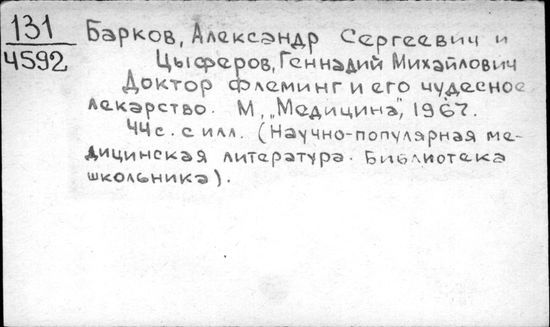 131
4592
Барков, Александр Сергеевич и
Цыферов, Геннадий Михайлович
Доктор Флеминг и его чудесное
лекарство. М, „Медицина", 1967.
44 с. с илл. (Научно-популярная ме-
дицинская литература. Библиотека
школьника).